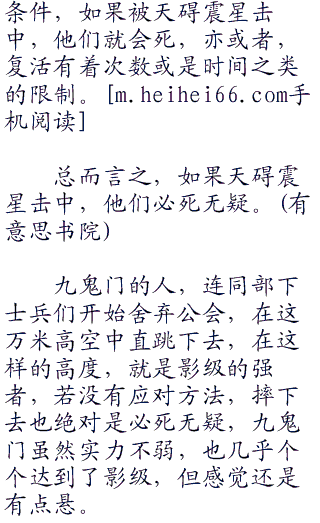 条件，如果被天碍震星击
中，他们就会死，亦或者，
复活有着次数或是时间之类
的限制。[m.heihei66.com手
机阅读]
总而言之，如果天碍震
星击中，他们必死无疑。(有
意思书院)
九鬼门的人，连同部下
士兵们开始舍弃公会，在这
万米高空中直跳下去，在这
样的高度，就是影级的强
者，若没有应对方法，摔下
去也绝对是必死无疑，九鬼
门虽然实力不弱，也几乎个
个达到了影级，但感觉还是
有点悬。